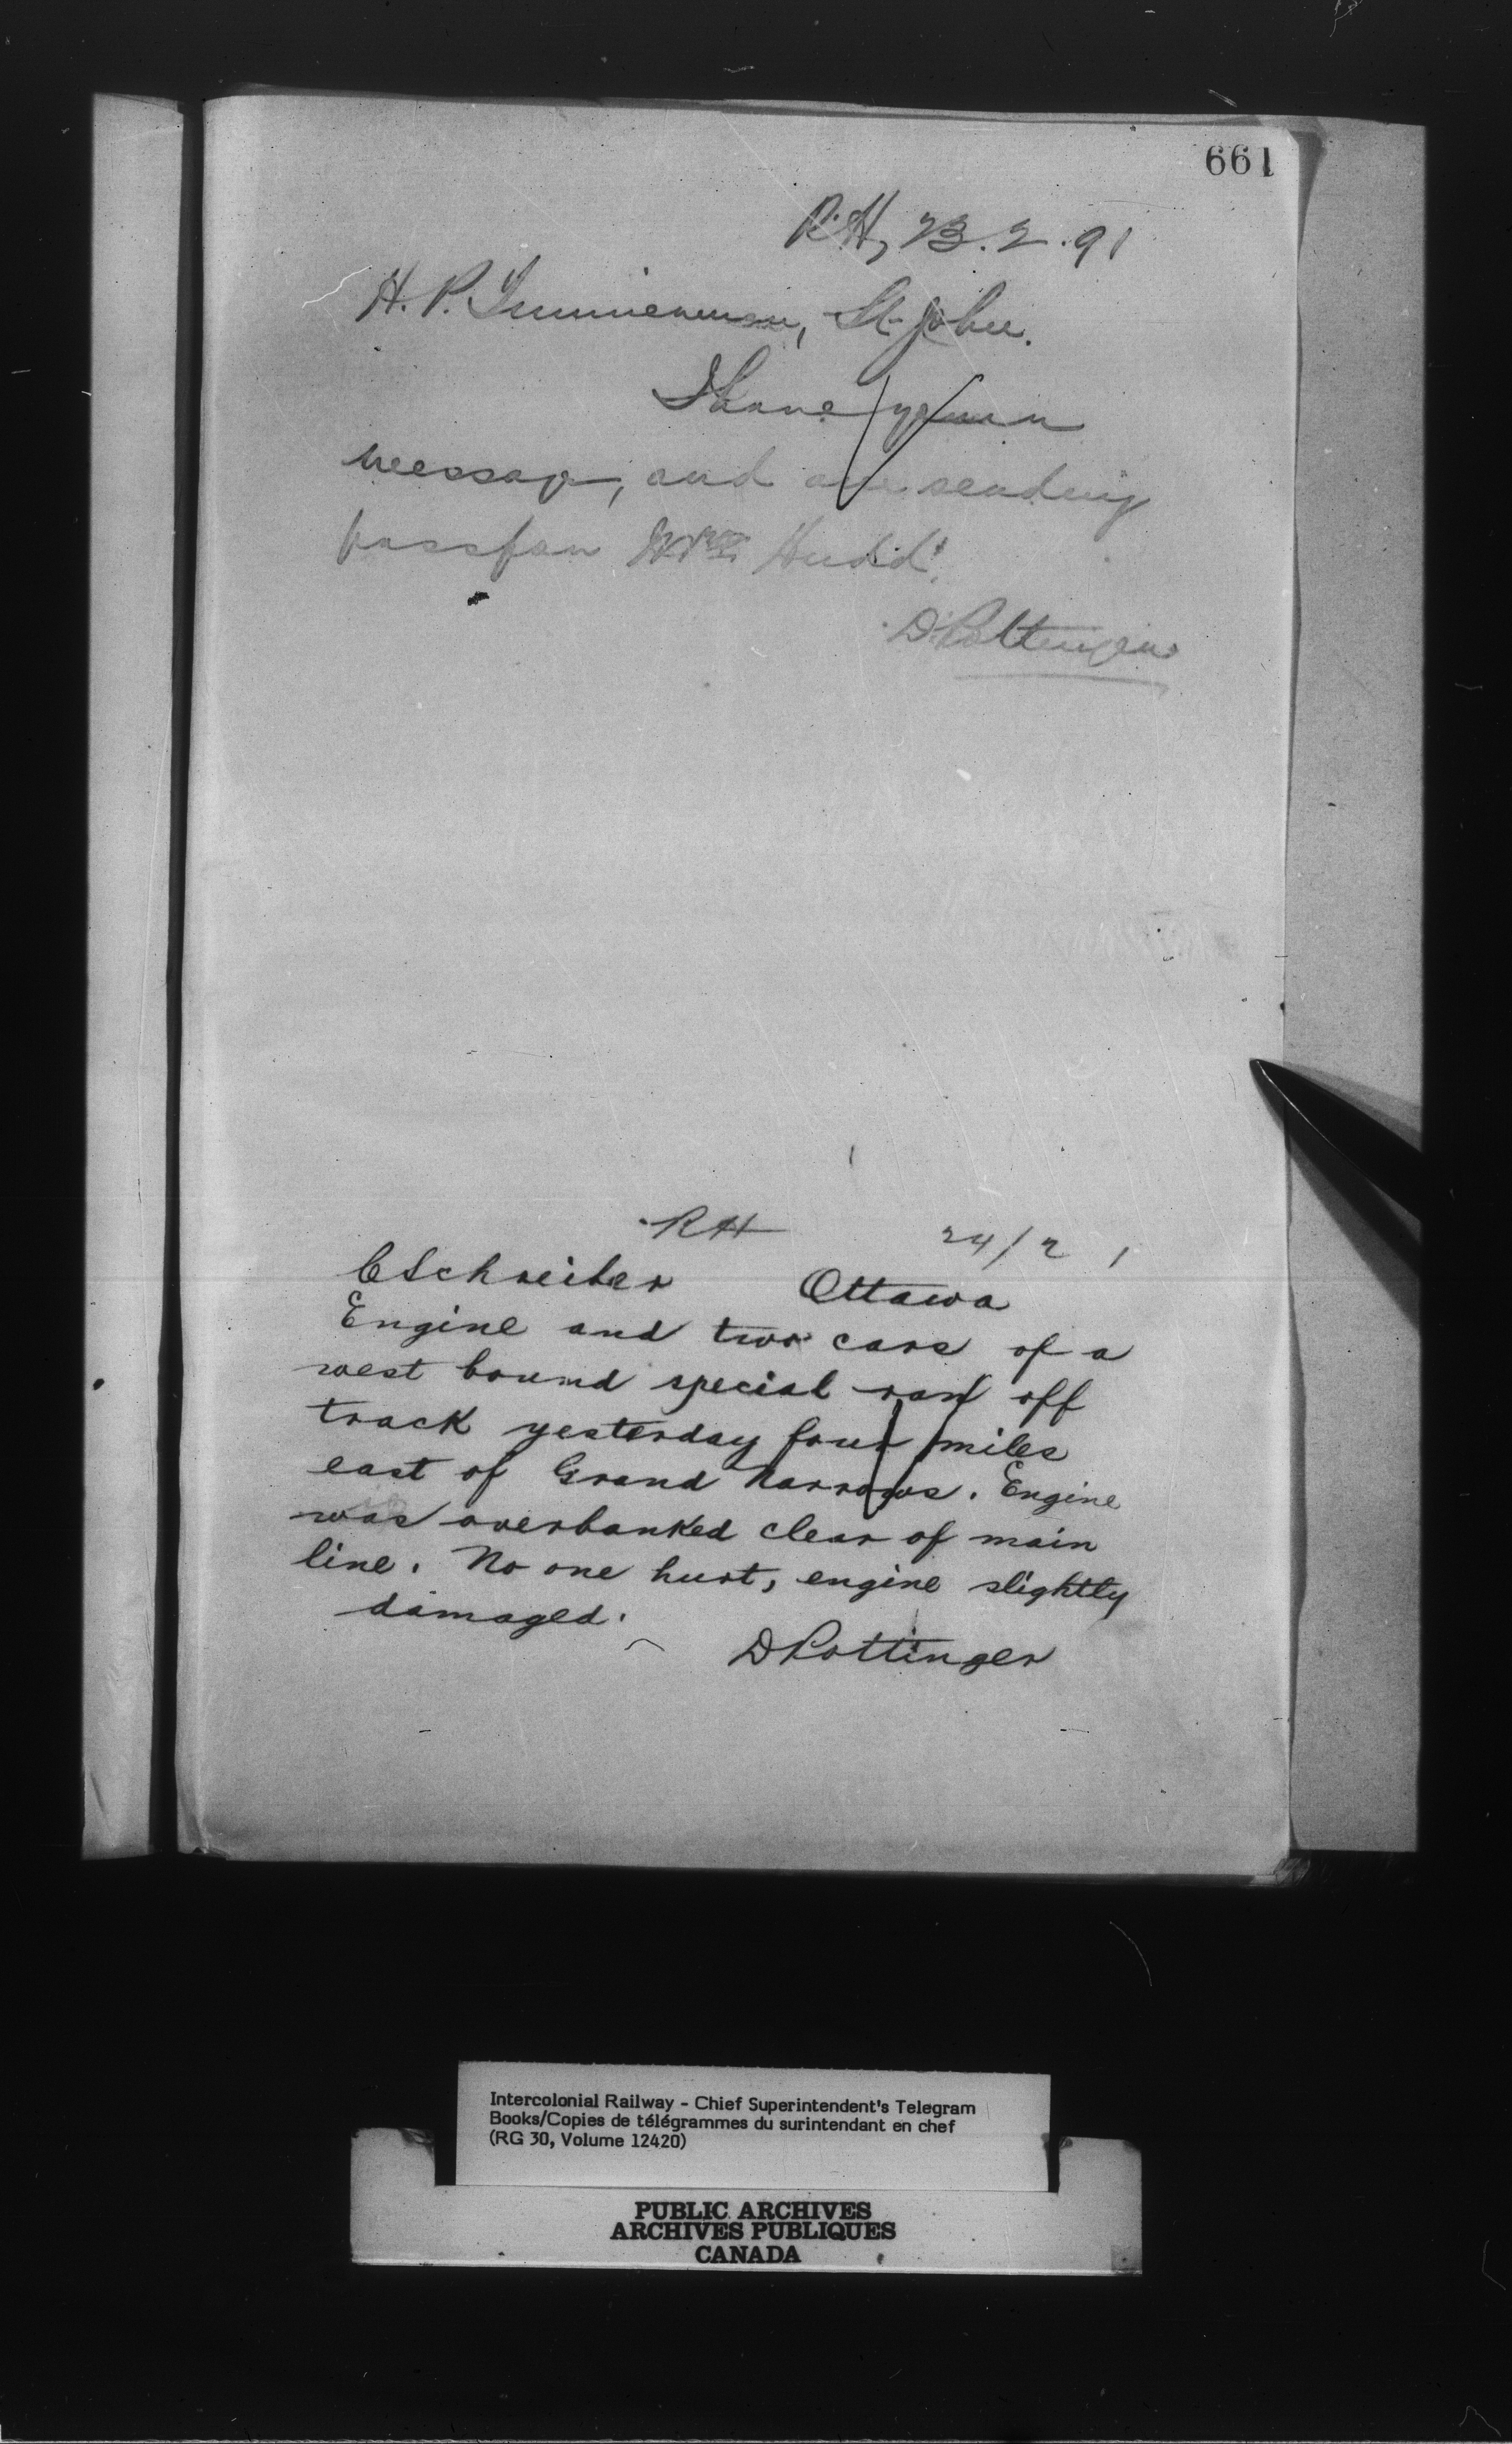 661
R.H, 23.2.91
H. P. Timmerman, St John.
I have your
message, and am sending
pass for Mrs Hudd.
D. Pottinger
RH 24/2 1
C Schreiber Ottawa
Engine and two cars of a
west bound special ran off
track yesterday four miles
east of Grand Narrows. Engine
was overbanked clear of main
line. No one hurt, engine slightly
damaged.
D Pottinger
Intercolonial Railway - Chief Superintendent's Telegram
Books/Copies de télégrammes du surintendant en chef
(RG 30, Volume 12420)
PUBLIC ARCHIVES
ARCHIVES PUBLIQUES
CANADA